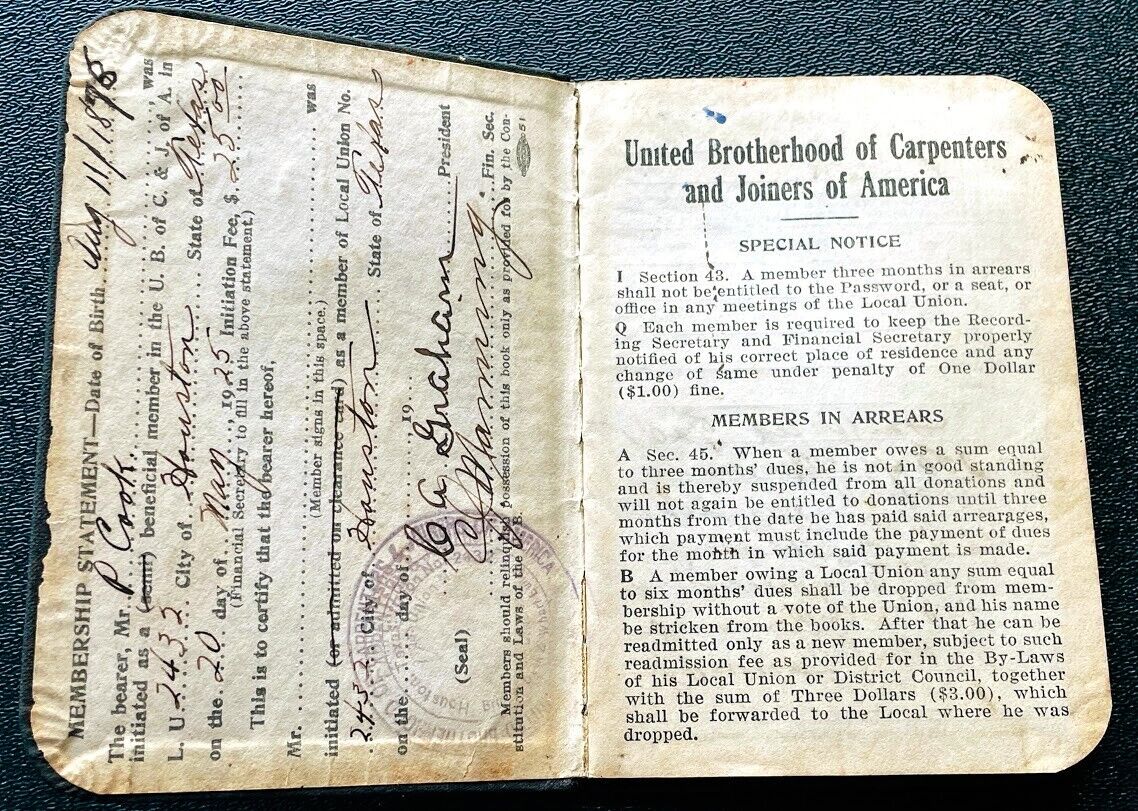 MEMBERSHIP STATEMENT—Date of Birth Aug 11/1895
The bearer, Mr. P. Cook was
initiated as a (semi) beneficial member in the U. B. of C. & J. of A. in
L. U. 2432 City of Houston State of Texas
on the 20 day of Mar, 1925 Initiation Fee, $ 25.00
(Financial Secretary to fill in the above statement.)
This is to certify that the bearer hereof,
Mr. was
(Member signs in this space.)
initiated (or admitted on clearance card) as a member of Local Union No.
2432 City of Houston State of Texas
on the day of , 19
C. A. Graham President
(Seal) Manning Fin. Sec.
Members should relinquish possession of this book only as provided for by the Con-
stitution and Laws of the U. B. 51
United Brotherhood of Carpenters
and Joiners of America
SPECIAL NOTICE
I Section 43. A member three months in arrears
shall not be entitled to the Password, or a seat, or
office in any meetings of the Local Union.
Q Each member is required to keep the Record-
ing Secretary and Financial Secretary properly
notified of his correct place of residence and any
change of same under penalty of One Dollar
($1.00) fine.
MEMBERS IN ARREARS
A Sec. 45. When a member owes a sum equal
to three months' dues, he is not in good standing
and is thereby suspended from all donations and
will not again be entitled to donations until three
months from the date he has paid said arrearages,
which payment must include the payment of dues
for the month in which said payment is made.
B A member owing a Local Union any sum equal
to six months' dues shall be dropped from mem-
bership without a vote of the Union, and his name
be stricken from the books. After that he can be
readmitted only as a new member, subject to such
readmission fee as provided for in the By-Laws
of his Local Union or District Council, together
with the sum of Three Dollars ($3.00), which
shall be forwarded to the Local where he was
dropped.